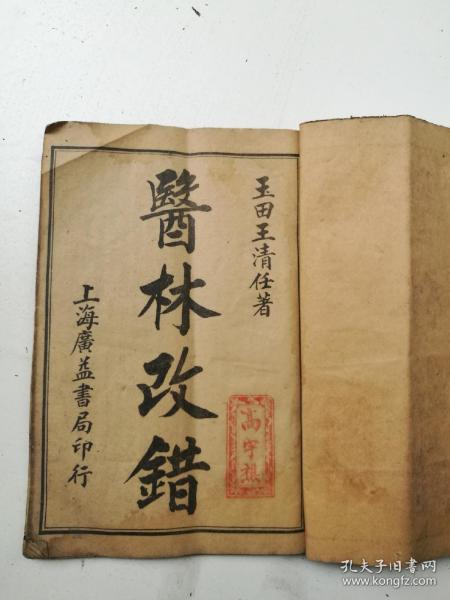 玉田王清任著
醫林改錯
上海廣益書局印行
孔夫子旧书网
www.kongfz.com